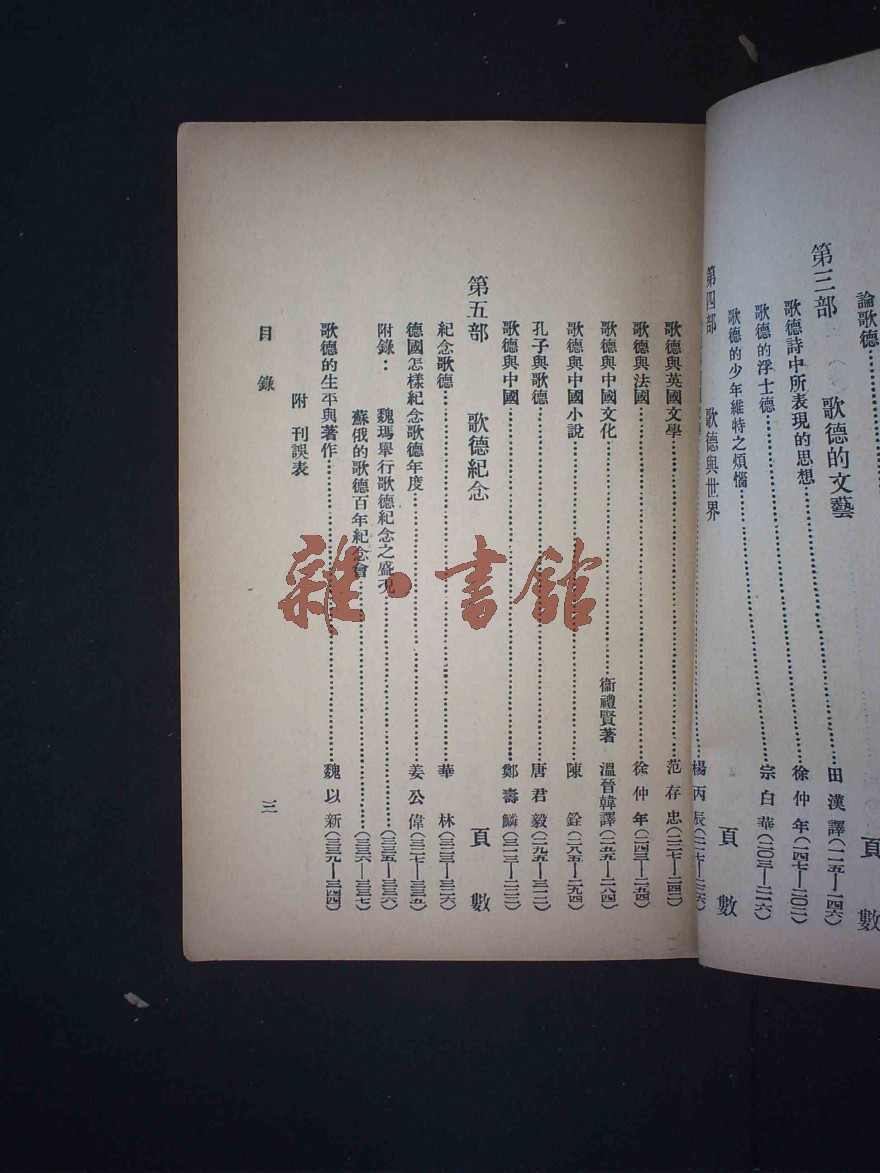 論歌德……
第三部 歌德的文藝 頁數
歌德詩中所表現的思想……田漢譯(一一五—一四六)
歌德的浮士德……徐仲年(一四七—二〇二)
歌德的少年維特之煩惱……宗白華(二〇三—二一六)
第四部 歌德與世界 頁數
楊丙辰(二一七—二二六)
歌德與英國文學……范存忠(二二七—二四二)
歌德與法國……徐仲年(二四三—二五四)
歌德與中國文化……衞禮賢著 溫晉韓譯(二五五—二八四)
歌德與中國小說……陳銓(二八五—二九四)
孔子與歌德……唐君毅(二九五—三一二)
歌德與中國……鄭壽麟(三一三—三二二)
第五部 歌德紀念 頁數
紀念歌德……華林(三二三—三二六)
德國怎樣紀念歌德年度……姜公偉(三二七—三三五)
附錄:魏瑪舉行歌德紀念之盛況……(三三五—三三六)
蘇俄的歌德百年紀念會……(三三六—三三七)
歌德的生平與著作……魏以新(三三九—三四四)
附 刊誤表
目錄 三
雜·書館